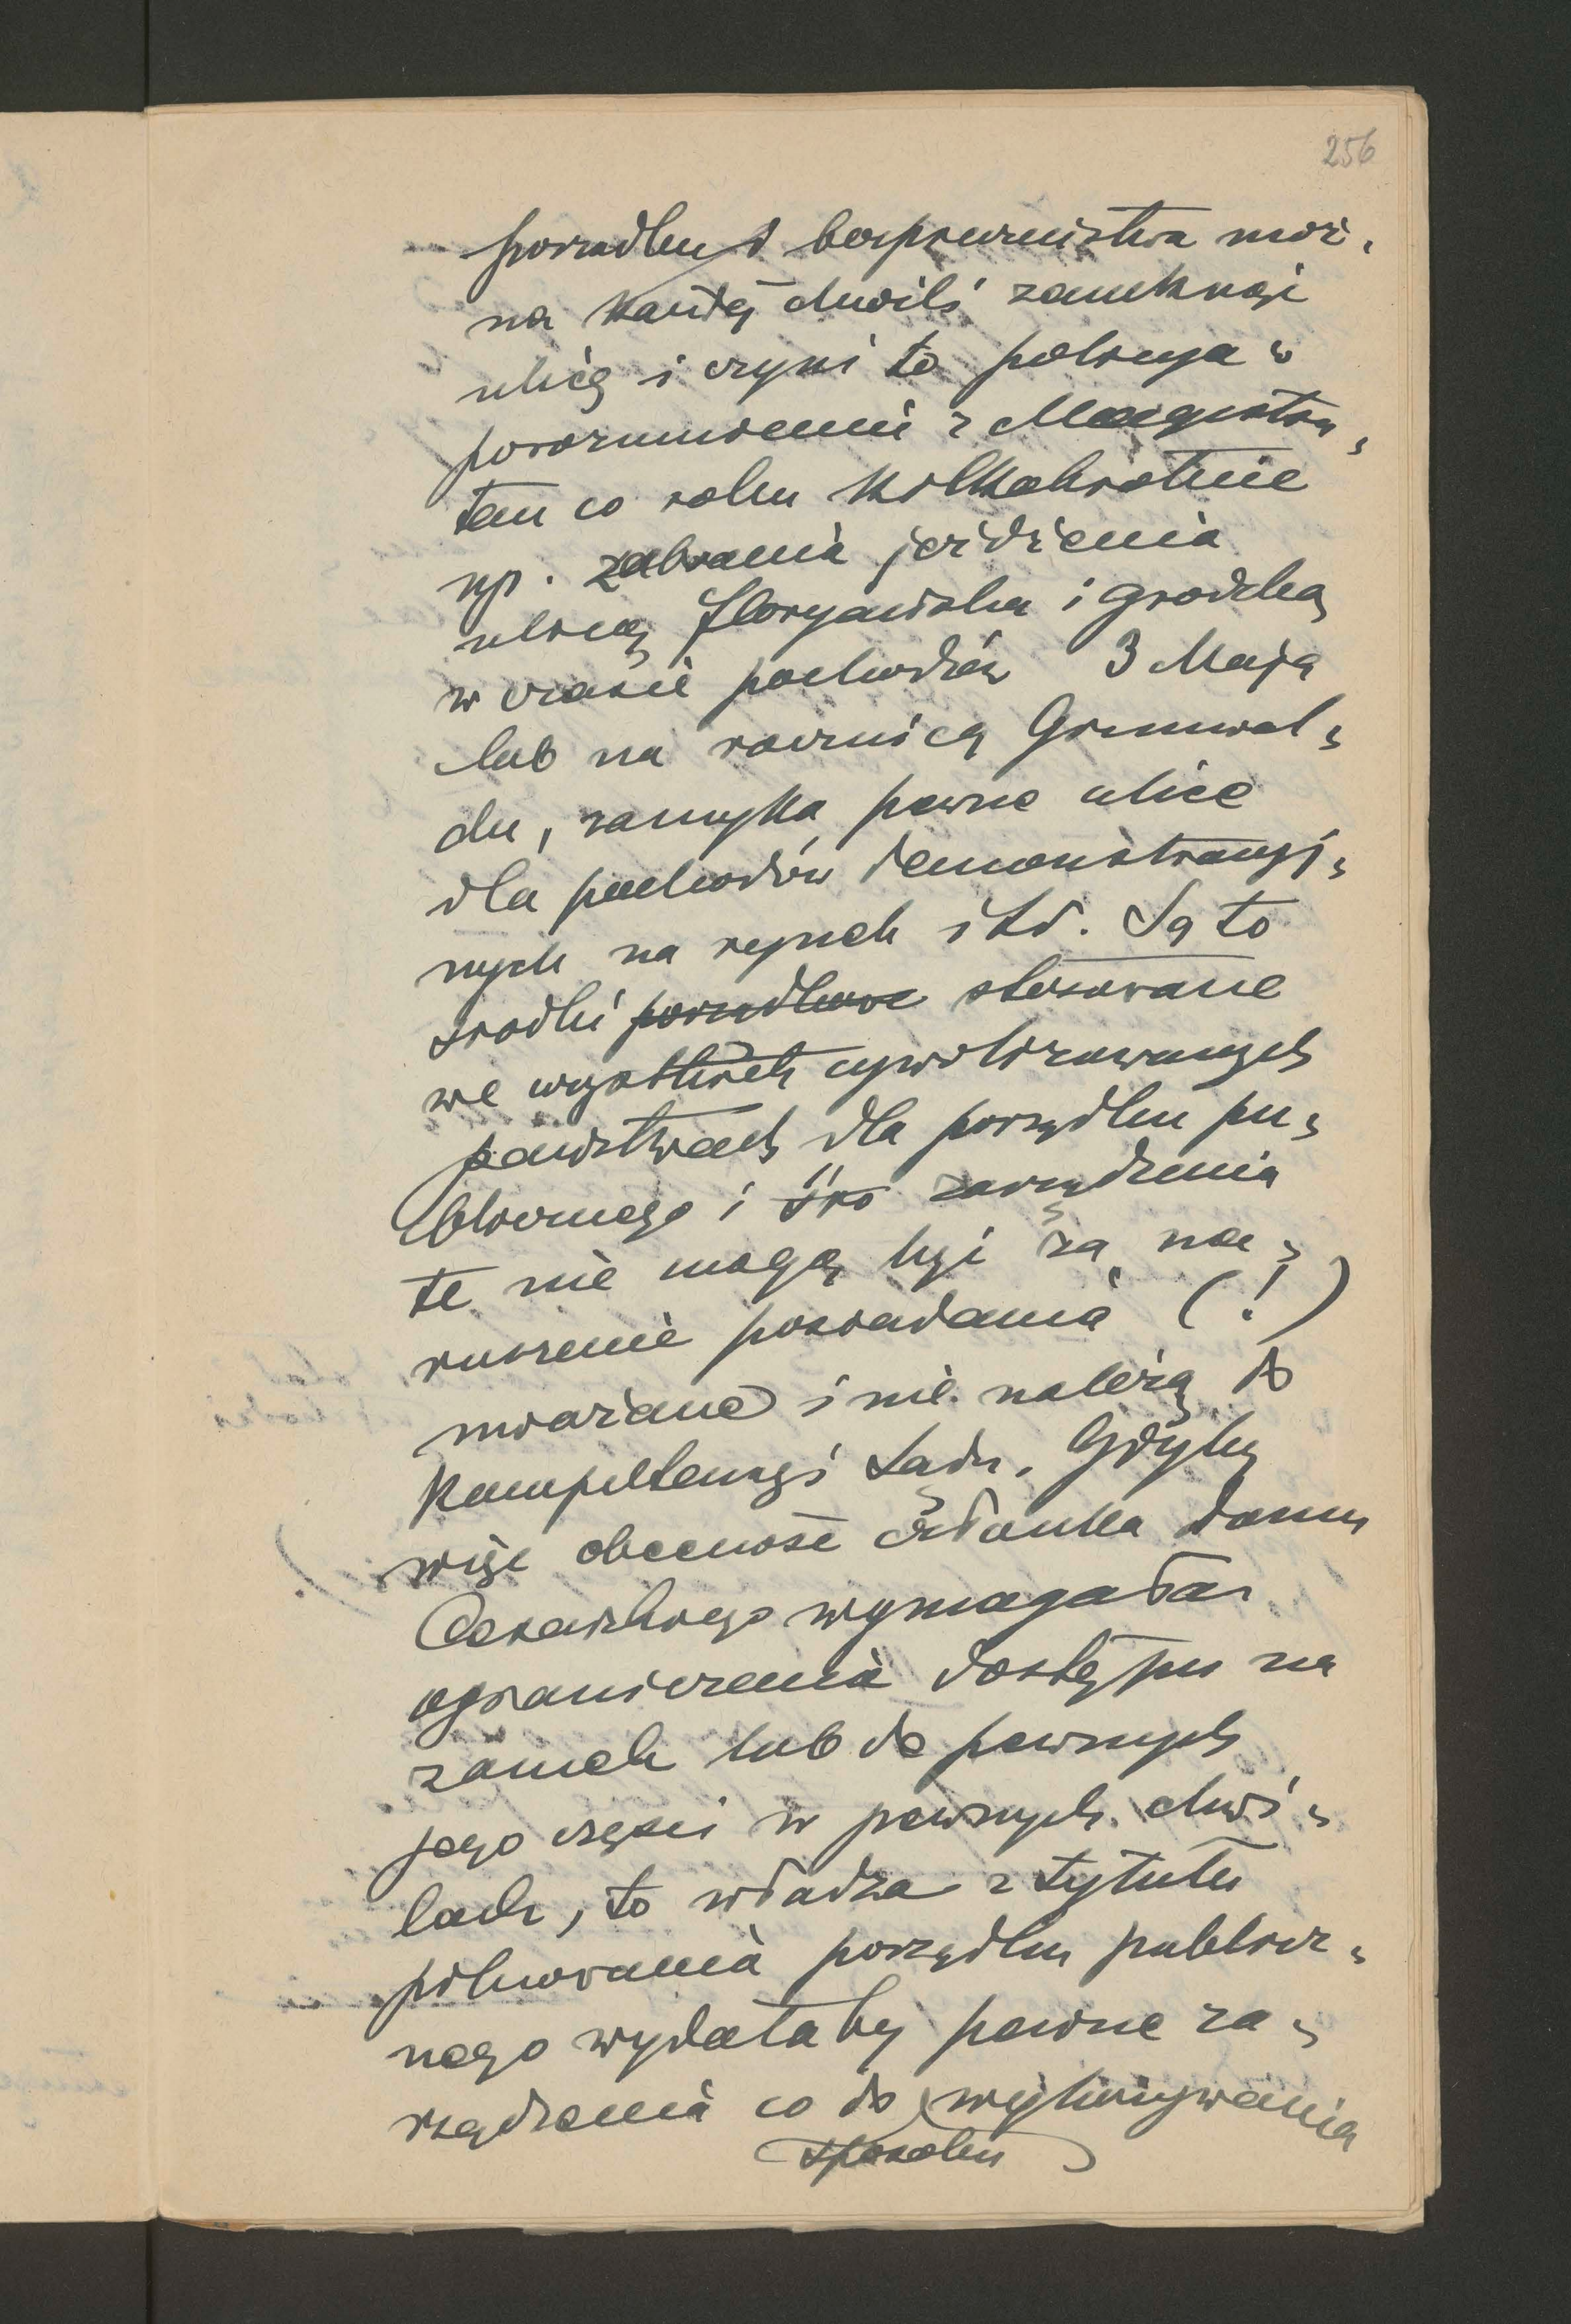 256
porządku i bezpieczeństwa moż-
na każdej chwili zamknąć
ulicę i czyni to policya w
porozumieniu z Magistra-
tem co roku kilkakrotnie
np. zabrania jeżdżenia
ulicą Floryańską i Grodzką
w czasie pochodów 3 Maja
lub na rocznicę Grunwal-
du, zamyka pewne ulice
dla pochodów demonstracyj-
nych na rynek itd. Są to
środki porządkowe stosowane
we wszystkich cywilizowanych
państwach dla porządku pu-
blicznego i zarządzenia
te nie mogą być za na-
ruszenie posiadania (!)
uważane i nie należą do
kompetencyi Sądu. Gdyby
więc obecność członka domu
Cesarskiego wymagała
ograniczenia dostępu na
zamek lub do pewnych
jego części w pewnych chwi-
lach, to władza z tytułu
pilnowania porządku publicz-
nego wydałaby pewne za-
rządzenia co do wykonywania
sposobu